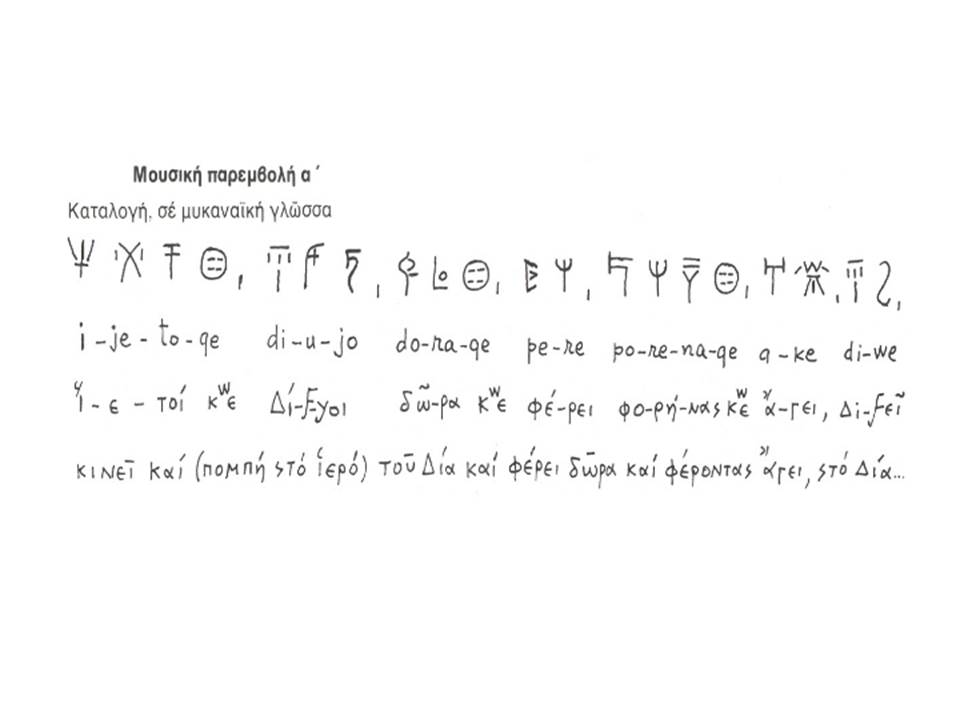 Μουσική παρεμβολή α ΄
Καταλογή, σέ μυκαναϊκή γλῶσσα
𐀂𐀋𐀵𐀤, 𐀇𐀄𐀍, 𐀈𐀨𐀤, 𐀟𐀩, 𐀡𐀩𐀙𐀤, 𐀀𐀐, 𐀇𐀸,
i-je-to-qe di-u-jo do-ra-qe pe-re po-re-na-qe a-ke di-we
ἵ-ε-τοί κʷε Δί-Ϝyοι δῶ-ρα κʷε φέ-ρει φο-ρή-νας κʷε ἄ-γει, Δι-Ϝεῖ
κινεῖ καί (πομπή στό ἱερό) τοῦ Δία καί φέρει δῶρα καί φέροντας ἄγει, στό Δία...